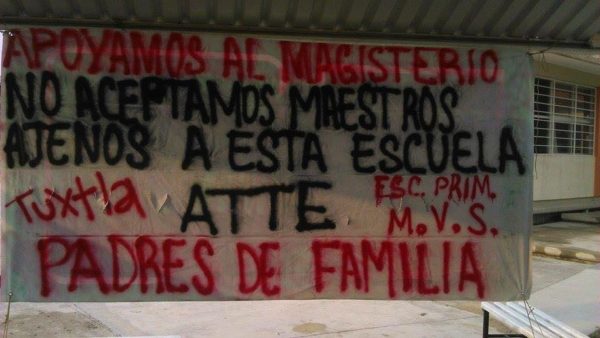 APOYAMOS AL MAGISTERIO
NO ACEPTAMOS MAESTROS
AJENOS A ESTA ESCUELA
Tuxtla ATTE ESC. PRIM.
M.V.S.
PADRES DE FAMILIA